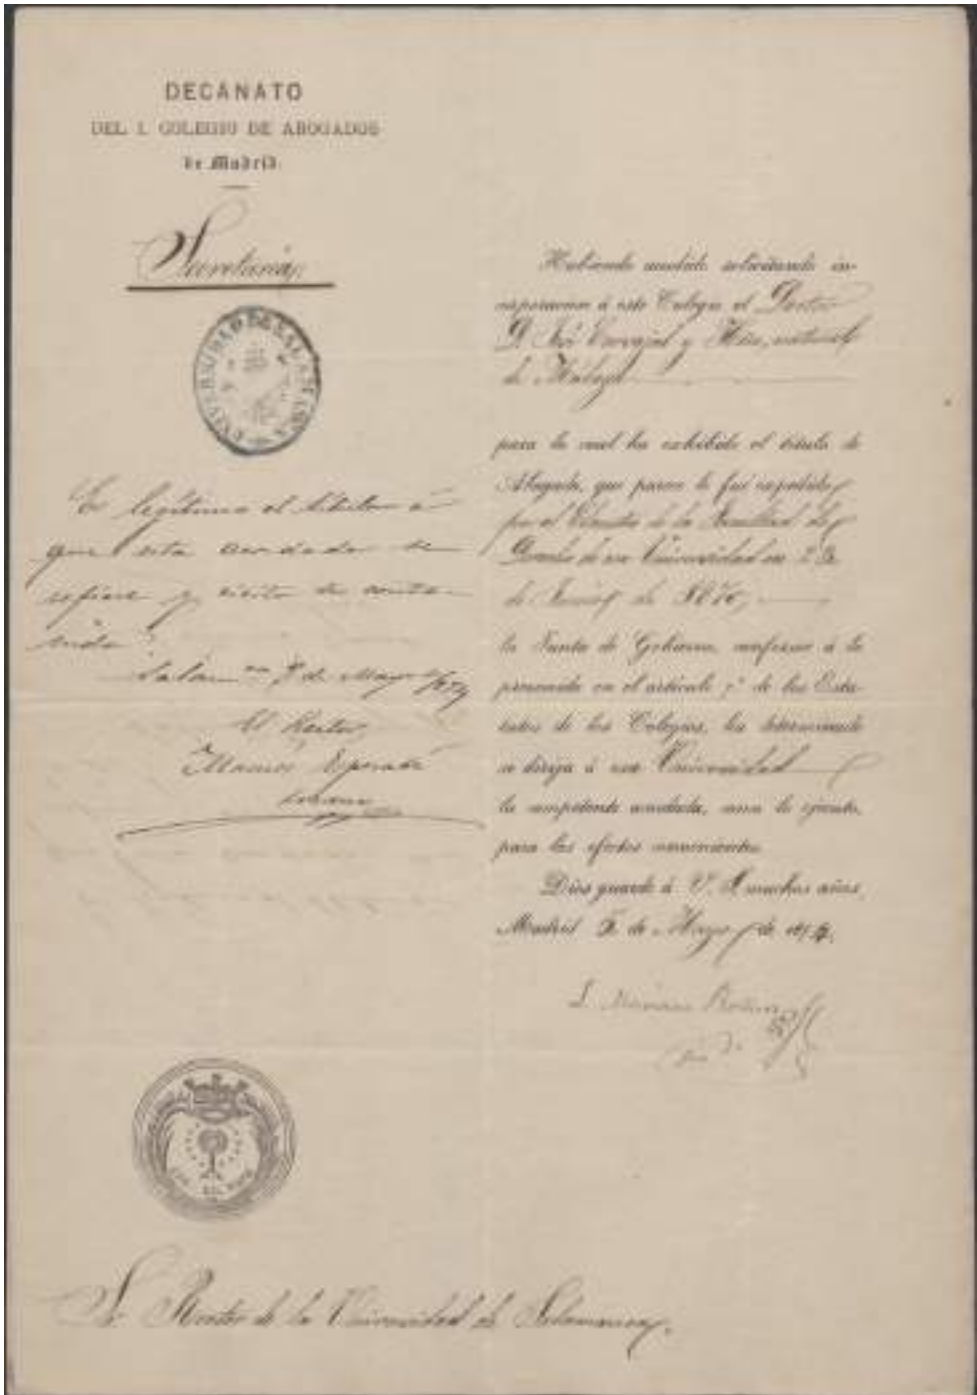 DECANATO
DEL I. COLEGIO DE ABOGADOS
de Madrid.
Secretaría
UNIVERSIDAD DE SALAMANCA
Es legítimo el título á
que esta acordada se
refiere y cierto su conte-
nido.
8 de Mayo
El Rector
Mamés Esperabé
Lozano
Habiendo acudido solicitando in-
corporacion á este Colegio el Doctor
D. José Carvajal y Hüe, natural
de Málaga
para lo cual ha exhibido el título de
Abogado, que parece le fué expedido
por el de la Facultad de
Derecho de esa Universidad en
de de 1870,
la Junta de Gobierno, conforme á lo
prevenido en el artículo 7.º de los Esta-
tutos de los Colegios, ha determinado
se dirija á esa Universidad
la competente acordada, como lo ejecuto,
para los efectos convenientes.
Dios guarde á V. S. muchos años.
Madrid de Mayo de
Sr. Rector de la Universidad de Salamanca.